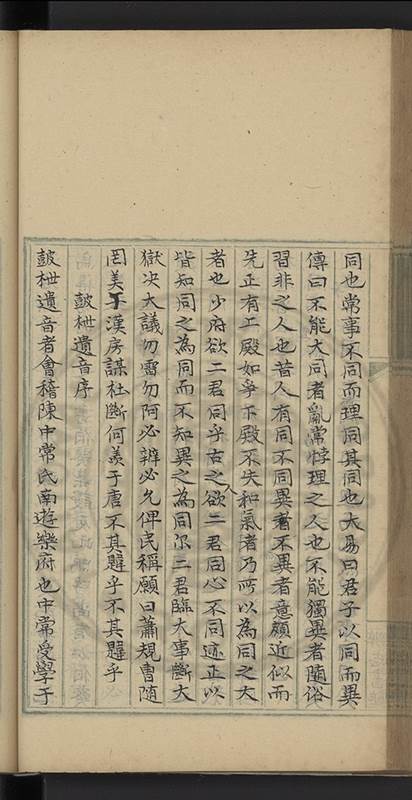 同也常事不同而理同其同也大易曰君子以同而異
傳曰不能大同者亂常悖理之人也不能獨異者隨俗
習非之人也昔人有同不同異者不異者意頗近似而
先正有工殿如爭下殿不失和氣者乃所以為同之大
者也少府欲二君同乎古之人欲二君同心不同迹正以
皆知同之為同而不知異之為同尔二君臨大事斷大
獄决大議勿雷勿阿必辨必允俾民稱願曰蕭規曹隨
罔美于漢房謀杜斷何羨于唐不其韙乎不其韙乎
鼓枻遺音序
鼓枻遺音者會稽陳中常氏南遊樂府也中常受學于